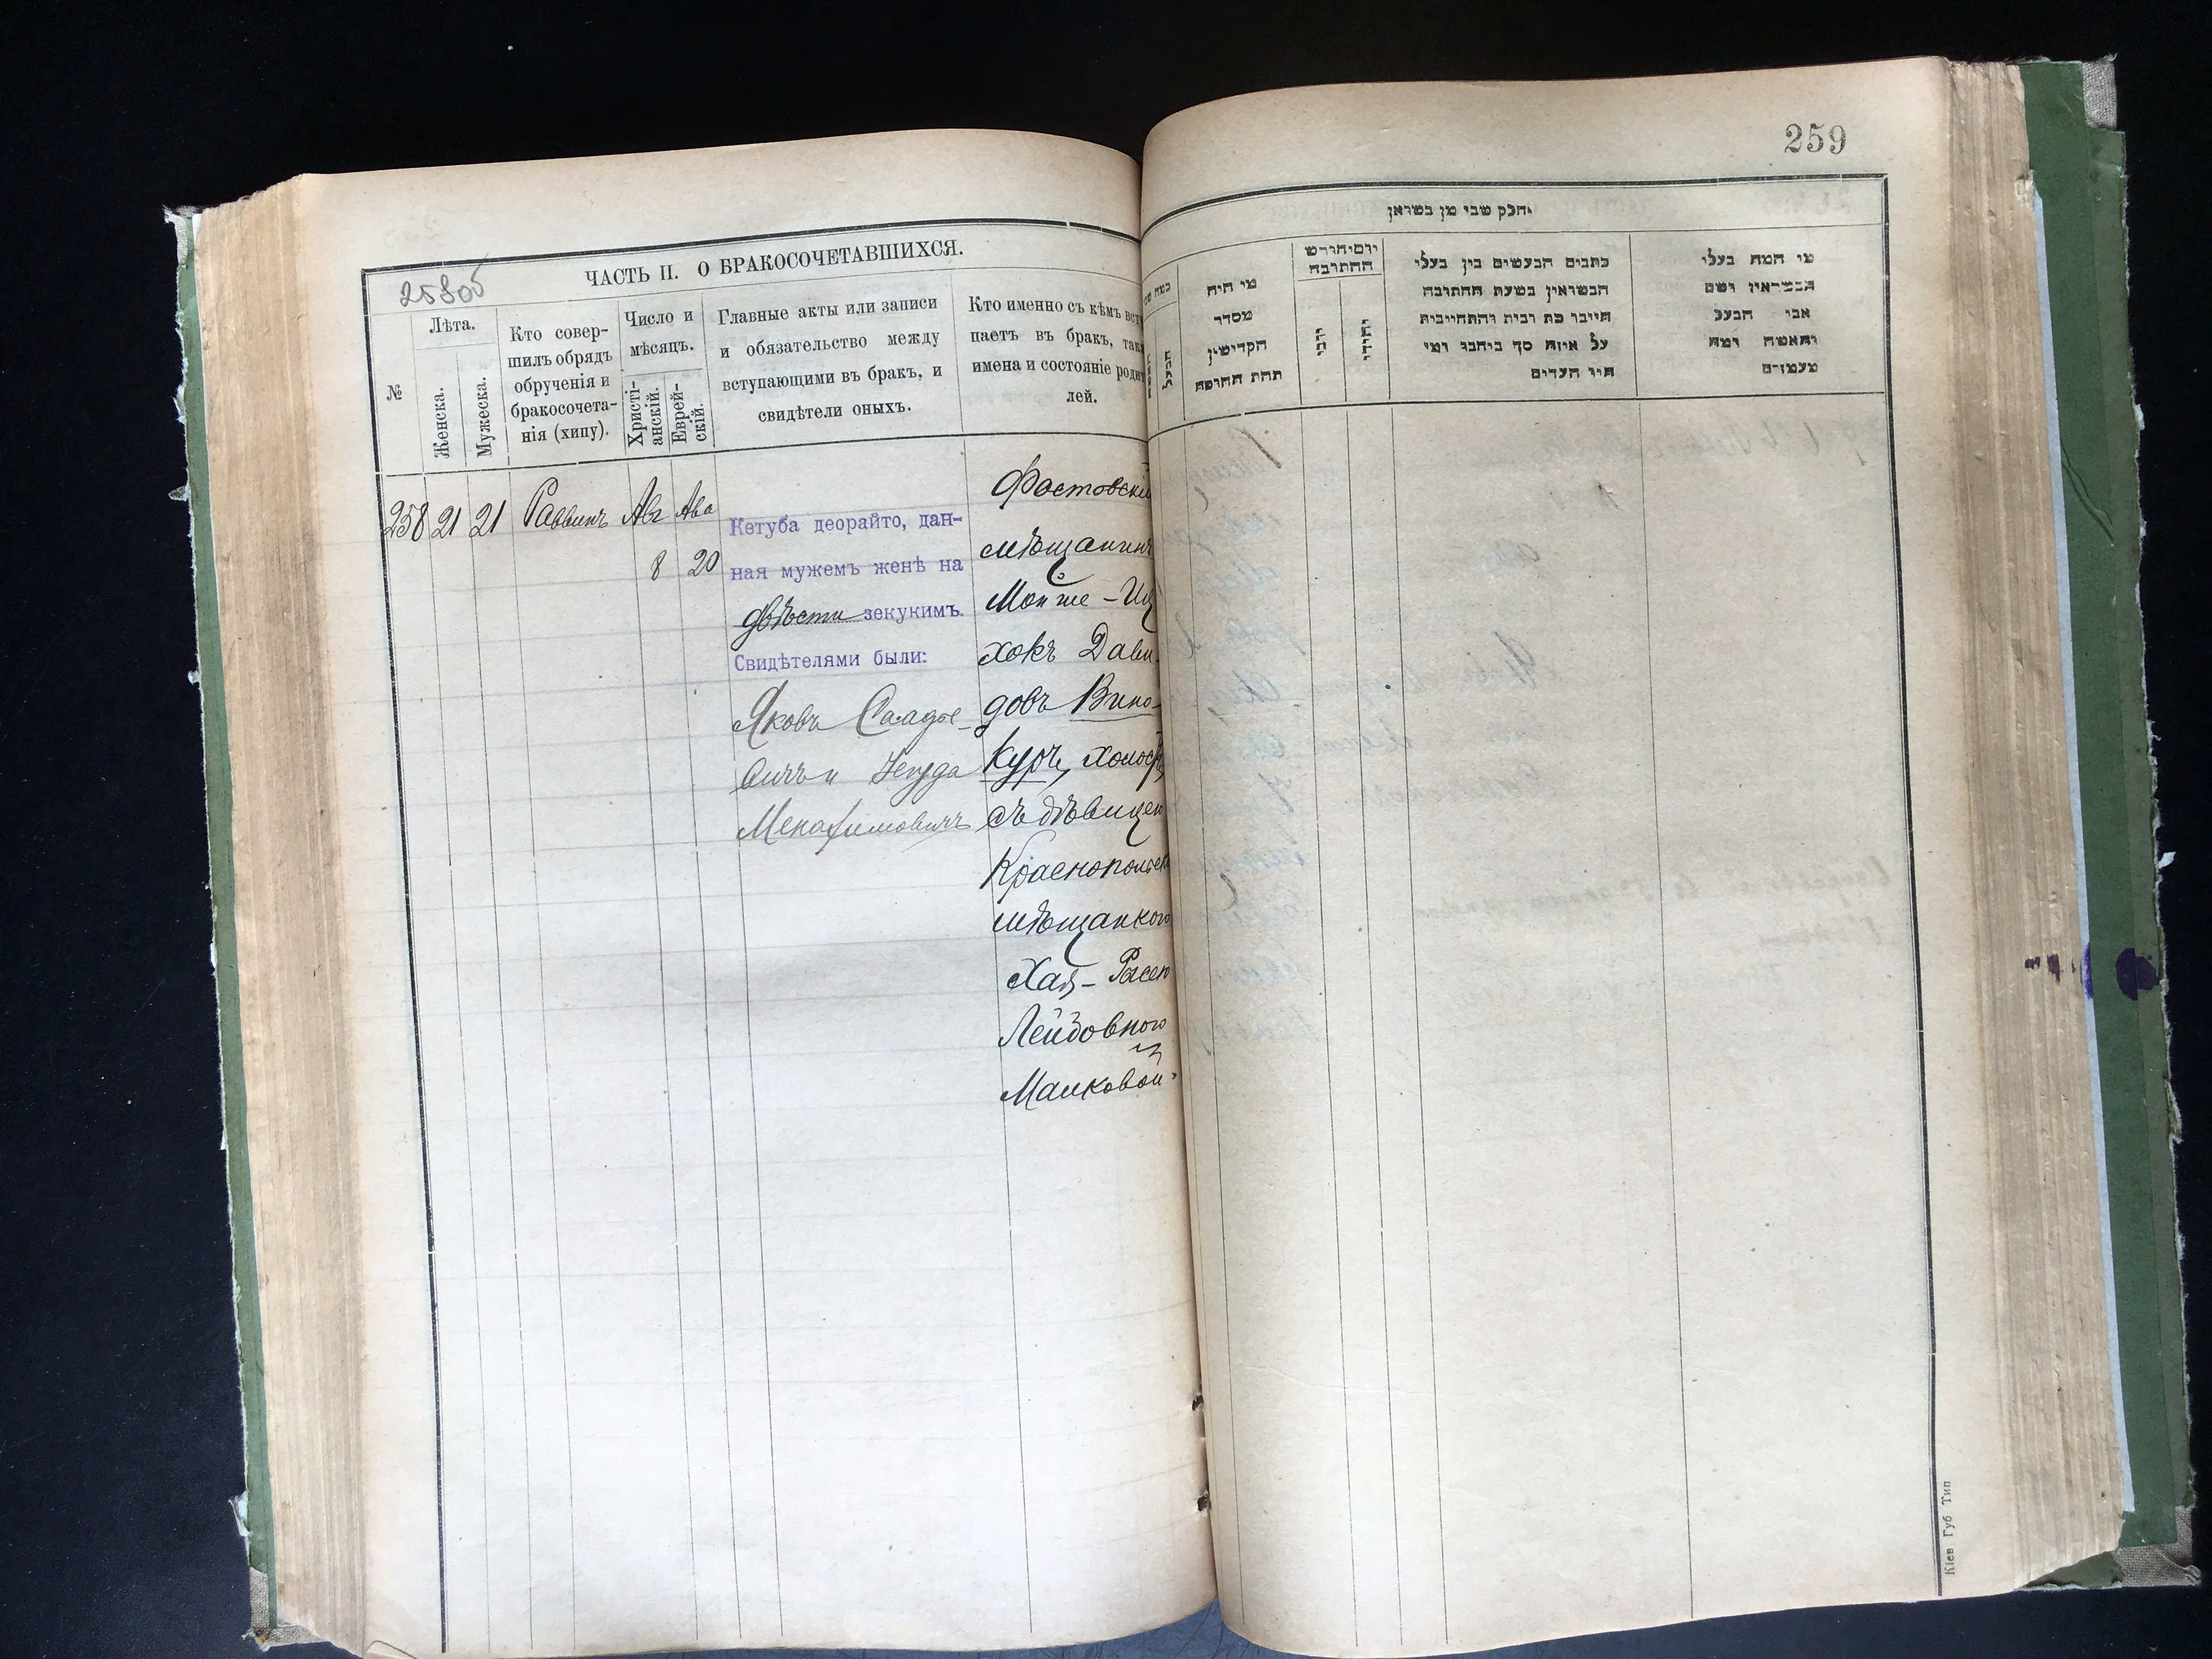 258об
ЧАСТЬ II. О БРАКОСОЧЕТАВШИХСЯ.
№
Лѣта.
Женска.
Мужеска.
Кто совер-
шилъ обрядъ
обрученія и
бракосочета-
нія (хипу).
Число и
мѣсяцъ.
Христі-
анскій.
Еврей-
скій.
Главные акты или записи
и обязательство между
вступающими въ бракъ, и
свидѣтели оныхъ.
Кто именно съ кѣмъ вст
паетъ въ бракъ, так
имена и состояніе роди
лей.
258 21 21 Раввинъ Авг Ава
8 20
Кетуба деорайто, дан-
ная мужемъ женѣ на
двѣсти зекукимъ.
Свидѣтелями были:
Яковъ
и Іегуда
Менахимовичъ
Фастовскій
мѣщанинъ
Мойше-Иц
хокъ Дави-
довъ Вино-
куръ, холостъ,
съ дѣвицею
Краснопольск
мѣщанкою
Хая-Рысею
Лейбовною
259
חלק שני מן בשואן
הבעל
מי היה
מסדר
הקדישין
תחת החופה
יום וחודש
החתובה
כתבים הנעשים בין בעלי
הנשואין בשעת החתובה
על איזה סך
מי המה בעלי
אבי הבעל
והאשה ומה
מעמדם
Кіев Губ Тип